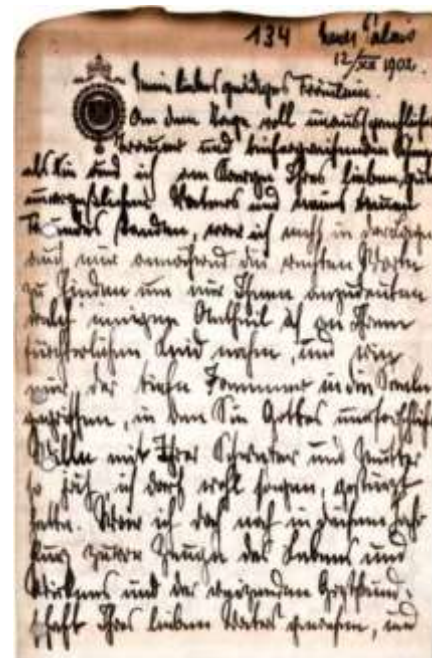 134 Neues Palais
12/XII 1902.
Mein liebes gnädiges Fräulein.
An dem Tage voll unaussprechlicher
Trauer und tiefergreifenden
als Sie und ich am Sarge Ihres lieben guten
unvergeßlichen Vaters und meines treuen
Freundes standen, war ich nicht in der Lage
auch nur annähernd die rechten Worte
zu finden um nur Ihnen anzudeuten
welch' innigen Antheil ich an Ihrem
fürchterlichen Leid nahm, und wie
mir der tiefe Jammer in die Seele
gegriffen, in den Sie Gottes unerforschlicher
Willen mit Ihrer Schwester und Mutter
so jäh, ich darf wohl sagen, gestürzt
hatte. War ich doch noch in diesem Jahr
kurz zuvor Zeuge des Lebens und
Wirkens und der reizenden Gastfreund-
schaft Ihres lieben Vaters gewesen, und